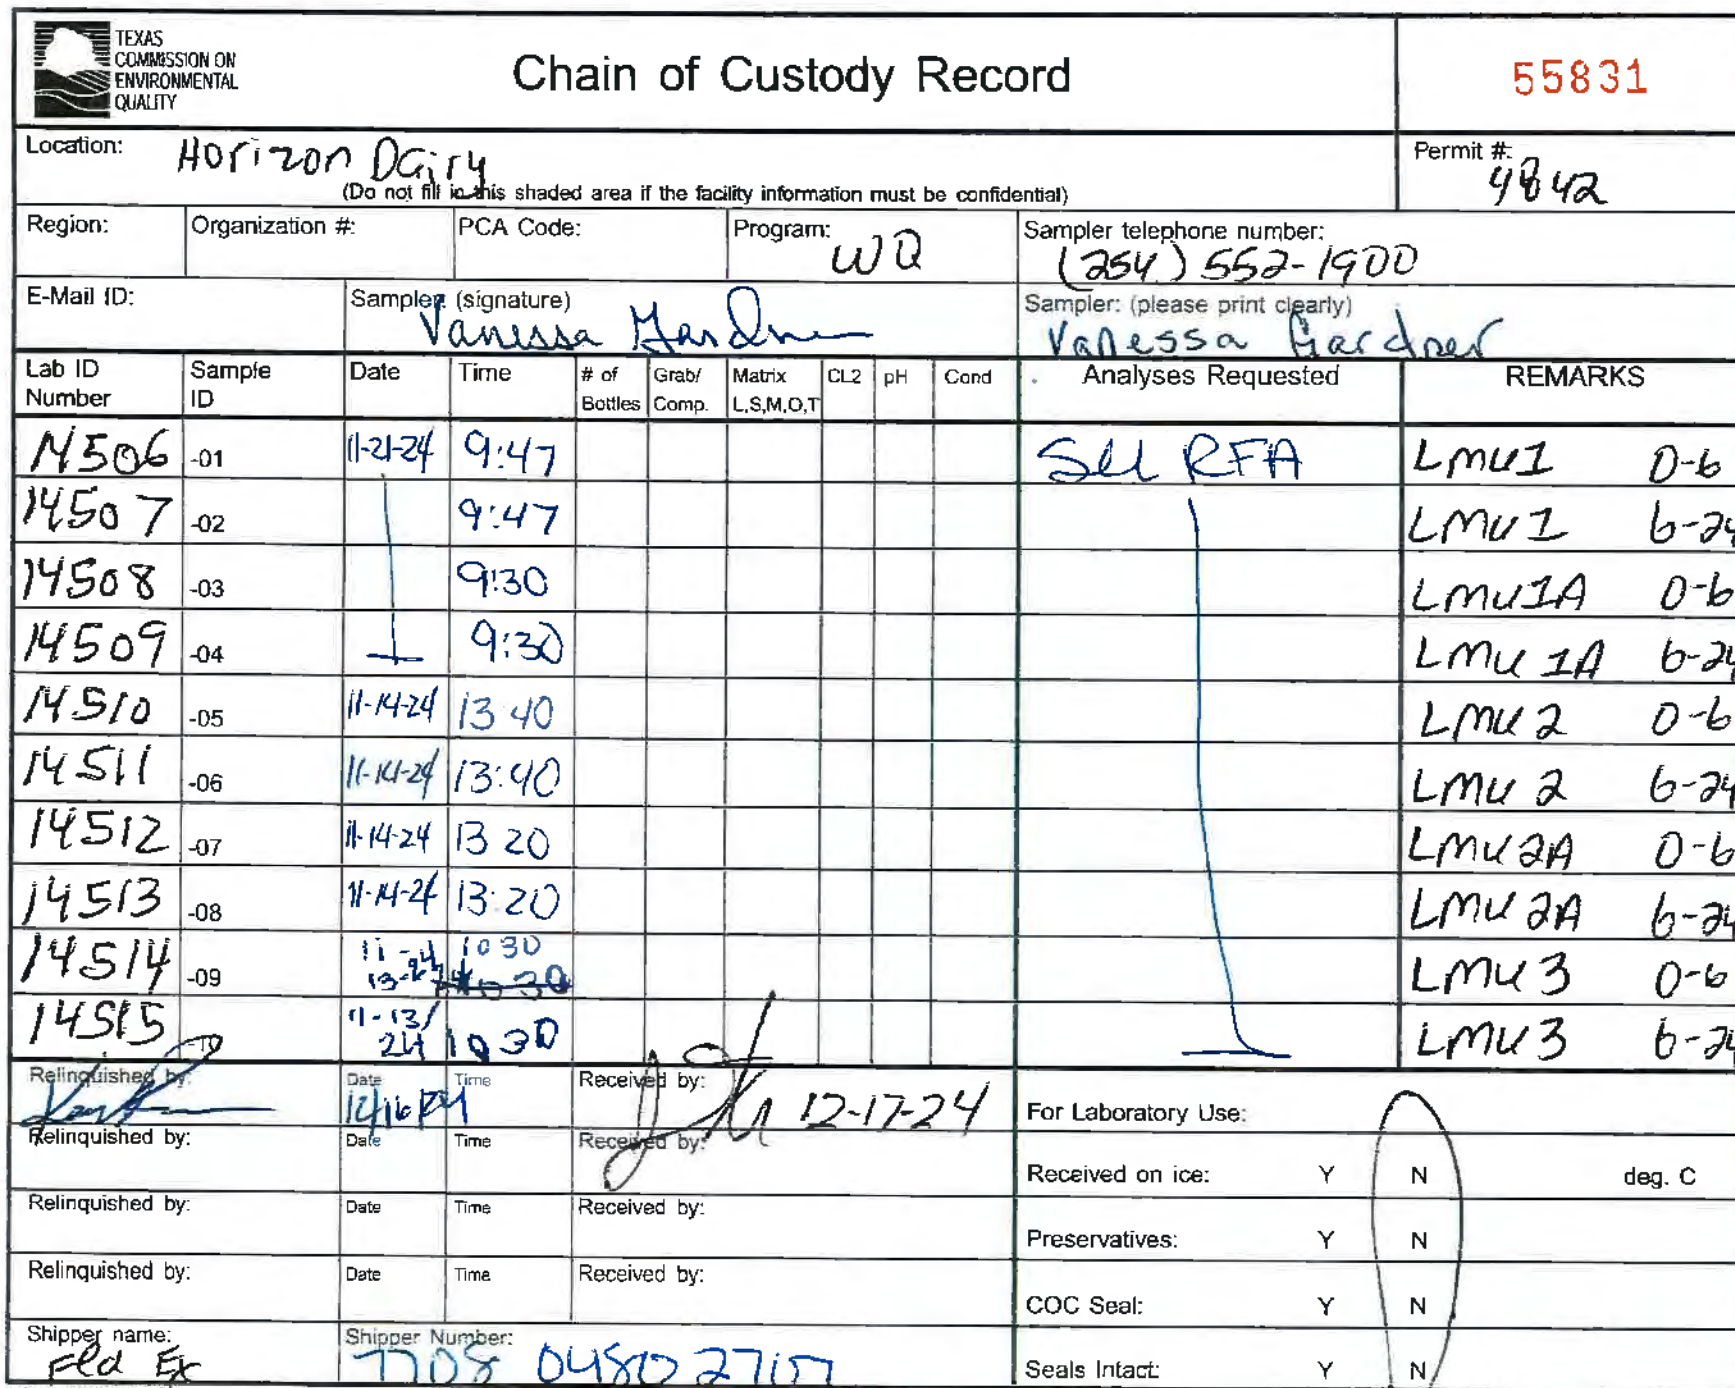 TEXAS
COMMISSION ON
ENVIRONMENTAL
QUALITY
Chain of Custody Record
55831
Location: Horizon Dairy
(Do not fill in this shaded area if the facility information must be confidential)
Permit #: 4842
Region: Organization #: PCA Code: Program: WQ Sampler telephone number: (254) 552-1900
E-Mail ID: Sampler: (signature) Vanessa Gardner Sampler: (please print clearly) Vanessa Gardner
Lab ID Number Sample ID Date Time # of Bottles Grab/ Comp. Matrix L,S,M,O,T CL2 pH Cond Analyses Requested REMARKS
14506 -01 11-21-24 9:47 See RFA LMU1 0-6
14507 -02 9:47 LMU1 6-24
14508 -03 9:30 LMU1A 0-6
14509 -04 9:30 LMU 1A 6-24
14510 -05 11-14-24 13 40 LMU 2 0-6
14511 -06 11-14-24 13:40 LMU 2 6-24
14512 -07 11-14-24 13 20 LMU2A 0-6
14513 -08 11-14-24 13:20 LMU 2A 6-24
14514 -09 10 30 LMU 3 0-6
14515 -10 11-13/24 1030 LMU 3 6-24
Relinquished by: Date 12/16/24 Time Received by: 12-17-24
For Laboratory Use:
Relinquished by: Date Time Received by:
Received on ice: Y N deg. C
Relinquished by: Date Time Received by:
Preservatives: Y N
Relinquished by: Date Time Received by:
COC Seal: Y N
Shipper name: Fed Ex Shipper Number: 7708 0480 2717
Seals Intact: Y N